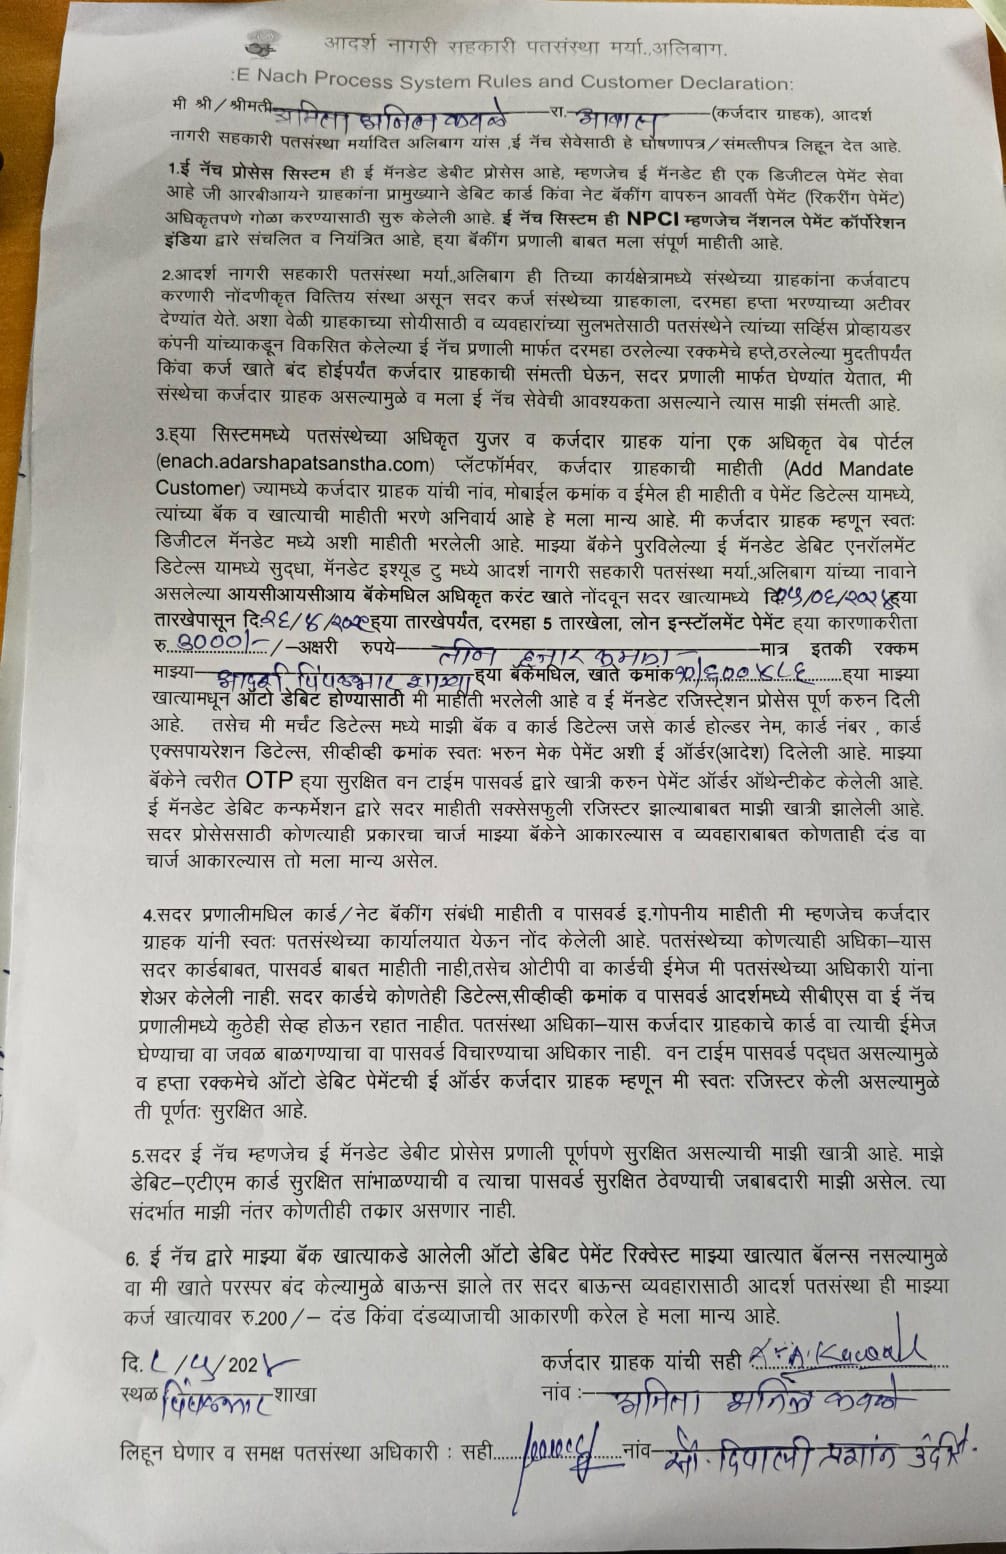 आदर्श नागरी सहकारी पतसंस्था मर्या.,अलिबाग.
:E Nach Process System Rules and Customer Declaration:
मी श्री/श्रीमती अमिता अनिल कवळे रा. आवास (कर्जदार ग्राहक), आदर्श
नागरी सहकारी पतसंस्था मर्यादित अलिबाग यांस ,ई नॅच सेवेसाठी हे घोषणापत्र/संमत्तीपत्र लिहून देत आहे.
1.ई नॅच प्रोसेस सिस्टम ही ई मॅनडेट डेबीट प्रोसेस आहे, म्हणजेच ई मॅनडेट ही एक डिजीटल पेमेंट सेवा
आहे जी आरबीआयने ग्राहकांना प्रामुख्याने डेबिट कार्ड किंवा नेट बॅकींग वापरुन आवर्ती पेमेंट (रिकरींग पेमेंट)
अधिकृतपणे गोळा करण्यासाठी सुरु केलेली आहे. ई नॅच सिस्टम ही NPCI म्हणजेच नॅशनल पेमेंट कॉर्पोरेशन
इंडिया द्वारे संचलित व नियंत्रित आहे, ह्या बॅकींग प्रणाली बाबत मला संपूर्ण माहीती आहे.
2.आदर्श नागरी सहकारी पतसंस्था मर्या.,अलिबाग ही तिच्या कार्यक्षेत्रामध्ये संस्थेच्या ग्राहकांना कर्जवाटप
करणारी नोंदणीकृत वित्तिय संस्था असून सदर कर्ज संस्थेच्या ग्राहकाला, दरमहा हप्ता भरण्याच्या अटीवर
देण्यांत येते. अशा वेळी ग्राहकाच्या सोयीसाठी व व्यवहारांच्या सुलभतेसाठी पतसंस्थेने त्यांच्या सर्व्हिस प्रोव्हायडर
कंपनी यांच्याकडून विकसित केलेल्या ई नॅच प्रणाली मार्फत दरमहा ठरलेल्या रक्कमेचे हप्ते,ठरलेल्या मुदतीपर्यंत
किंवा कर्ज खाते बंद होईपर्यंत कर्जदार ग्राहकाची संमत्ती घेऊन, सदर प्रणाली मार्फत घेण्यांत येतात, मी
संस्थेचा कर्जदार ग्राहक असल्यामुळे व मला ई नॅच सेवेची आवश्यकता असल्याने त्यास माझी संमत्ती आहे.
3.ह्या सिस्टममध्ये पतसंस्थेच्या अधिकृत युजर व कर्जदार ग्राहक यांना एक अधिकृत वेब पोर्टल
(enach.adarshapatsanstha.com) प्लॅटफॉर्मवर, कर्जदार ग्राहकाची माहीती (Add Mandate
Customer) ज्यामध्ये कर्जदार ग्राहक यांची नांव, मोबाईल क्रमांक व ईमेल ही माहीती व पेमेंट डिटेल्स यामध्ये,
त्यांच्या बॅक व खात्याची माहीती भरणे अनिवार्य आहे हे मला मान्य आहे. मी कर्जदार ग्राहक म्हणून स्वतः
डिजीटल मॅनडेट मध्ये अशी माहीती भरलेली आहे. माझ्या बॅकेने पुरविलेल्या ई मॅनडेट डेबिट एनरॉलमेंट
डिटेल्स यामध्ये सुद्धा, मॅनडेट इश्यूड टु मध्ये आदर्श नागरी सहकारी पतसंस्था मर्या.,अलिबाग यांच्या नावाने
असलेल्या आयसीआयसीआय बॅकेमधिल अधिकृत करंट खाते नोंदवून सदर खात्यामध्ये दि.०५/०६/२०२४ ह्या
तारखेपासून दि. २६/४/२०२९ ह्या तारखेपर्यंत, दरमहा 5 तारखेला, लोन इन्स्टॉलमेंट पेमेंट ह्या कारणाकरीता
रु. ३०००/- /-अक्षरी रुपये तीन हजार रुपये मात्र इतकी रक्कम
माझ्या आदर्श पिंपळभाट शाखा ह्या बॅकेमधिल, खाते क्रमांक ह्या माझ्या
खात्यामधून ऑटो डेबिट होण्यासाठी मी माहीती भरलेली आहे व ई मॅनडेट रजिस्ट्रेशन प्रोसेस पूर्ण करुन दिली
आहे. तसेच मी मर्चंट डिटेल्स मध्ये माझी बॅक व कार्ड डिटेल्स जसे कार्ड होल्डर नेम, कार्ड नंबर , कार्ड
एक्सपायरेशन डिटेल्स, सीव्हीव्ही क्रमांक स्वतः भरुन मेक पेमेंट अशी ई ऑर्डर(आदेश) दिलेली आहे. माझ्या
बॅकेने त्वरीत OTP ह्या सुरक्षित वन टाईम पासवर्ड द्वारे खात्री करुन पेमेंट ऑर्डर ऑथेन्टीकेट केलेली आहे.
ई मॅनडेट डेबिट कन्फर्मेशन द्वारे सदर माहीती सक्सेसफुली रजिस्टर झाल्याबाबत माझी खात्री झालेली आहे.
सदर प्रोसेससाठी कोणत्याही प्रकारचा चार्ज माझ्या बॅकेने आकारल्यास व व्यवहाराबाबत कोणताही दंड वा
चार्ज आकारल्यास तो मला मान्य असेल.
4.सदर प्रणालीमधिल कार्ड/नेट बॅकींग संबंधी माहीती व पासवर्ड इ.गोपनीय माहीती मी म्हणजेच कर्जदार
ग्राहक यांनी स्वतः पतसंस्थेच्या कार्यालयात येऊन नोंद केलेली आहे. पतसंस्थेच्या कोणत्याही अधिका–यास
सदर कार्डबाबत, पासवर्ड बाबत माहीती नाही,तसेच ओटीपी वा कार्डची ईमेज मी पतसंस्थेच्या अधिकारी यांना
शेअर केलेली नाही. सदर कार्डचे कोणतेही डिटेल्स,सीव्हीव्ही क्रमांक व पासवर्ड आदर्शमध्ये सीबीएस वा ई नॅच
प्रणालीमध्ये कुठेही सेव्ह होऊन रहात नाहीत. पतसंस्था अधिका–यास कर्जदार ग्राहकाचे कार्ड वा त्याची ईमेज
घेण्याचा वा जवळ बाळगण्याचा वा पासवर्ड विचारण्याचा अधिकार नाही. वन टाईम पासवर्ड पद्धत असल्यामुळे
व हप्ता रक्कमेचे ऑटो डेबिट पेमेंटची ई ऑर्डर कर्जदार ग्राहक म्हणून मी स्वतः रजिस्टर केली असल्यामुळे
ती पूर्णतः सुरक्षित आहे.
5.सदर ई नॅच म्हणजेच ई मॅनडेट डेबीट प्रोसेस प्रणाली पूर्णपणे सुरक्षित असल्याची माझी खात्री आहे. माझे
डेबिट–एटीएम कार्ड सुरक्षित सांभाळण्याची व त्याचा पासवर्ड सुरक्षित ठेवण्याची जबाबदारी माझी असेल. त्या
संदर्भात माझी नंतर कोणतीही तक्रार असणार नाही.
6. ई नॅच द्वारे माझ्या बॅक खात्याकडे आलेली ऑटो डेबिट पेमेंट रिक्वेस्ट माझ्या खात्यात बॅलन्स नसल्यामुळे
वा मी खाते परस्पर बंद केल्यामुळे बाऊन्स झाले तर सदर बाऊन्स व्यवहारासाठी आदर्श पतसंस्था ही माझ्या
कर्ज खात्यावर रु.200/– दंड किंवा दंडव्याजाची आकारणी करेल हे मला मान्य आहे.
दि. ८/५/202४ कर्जदार ग्राहक यांची सही
स्थळ पिंपळभाट शाखा नांव :- अमिता अनिल कवळे
लिहून घेणार व समक्ष पतसंस्था अधिकारी : सही नांव सौ. दिपाली प्रशांत उंदीरे